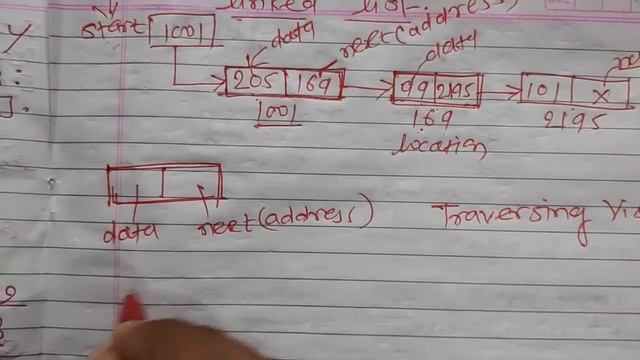 linked list
start 1001 data next(address) data
205 169 99 2195 101 X
1001 169 2195
location
data next(address) Traversing